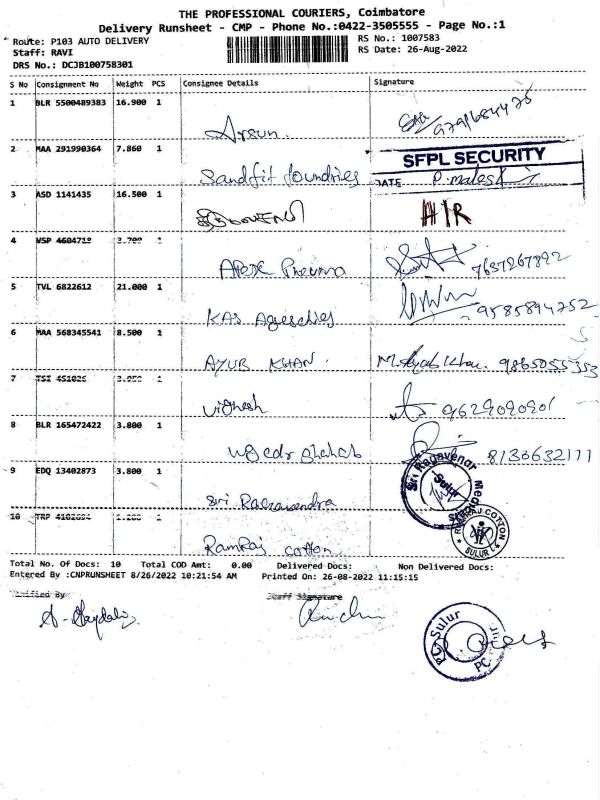 THE PROFESSIONAL COURIERS, Coimbatore
Delivery Runsheet - CMP - Phone No.:0422-3505555 - Page No.:1
Route: P103 AUTO DELIVERY
RS No.: 1007583
Staff: RAVI
RS Date: 26-Aug-2022
DRS No.: DCJB100758301
S No Consignment No Weight PCS Consignee Details Signature
1 BLR 5500489383 16.900 1
Arsun. 9791684475
2 MAA 291990364 7.860 1
SFPL SECURITY
Sandfit foundries DATE
3 ASD 1141435 16.500 1
H/R
4 VSP 4604718 3.700 1
Apex Pneuma 7637267892
5 TVL 6822612 21.000 1
KAS Agencies 9585894252
6 MAA 568345541 8.500 1
AYUB KHAN. 9865055353
7 TSI 451026 1
Vighesh 9629090901
8 BLR 165472422 3.800 1
8130632111
9 EDQ 13402873 3.800 1
Sri Ragavendra
Sri Ragavendra Sulur
10 TRP 1
Ramraj cotton
RAMRAJ COTTON SULUR
Total No. Of Docs: 10 Total COD Amt: 0.00 Delivered Docs: Non Delivered Docs:
Entered By :CNPRUNSHEET 8/26/2022 10:21:54 AM Printed On: 26-08-2022 11:15:15
Verified By Staff Signature
Sulur
PC